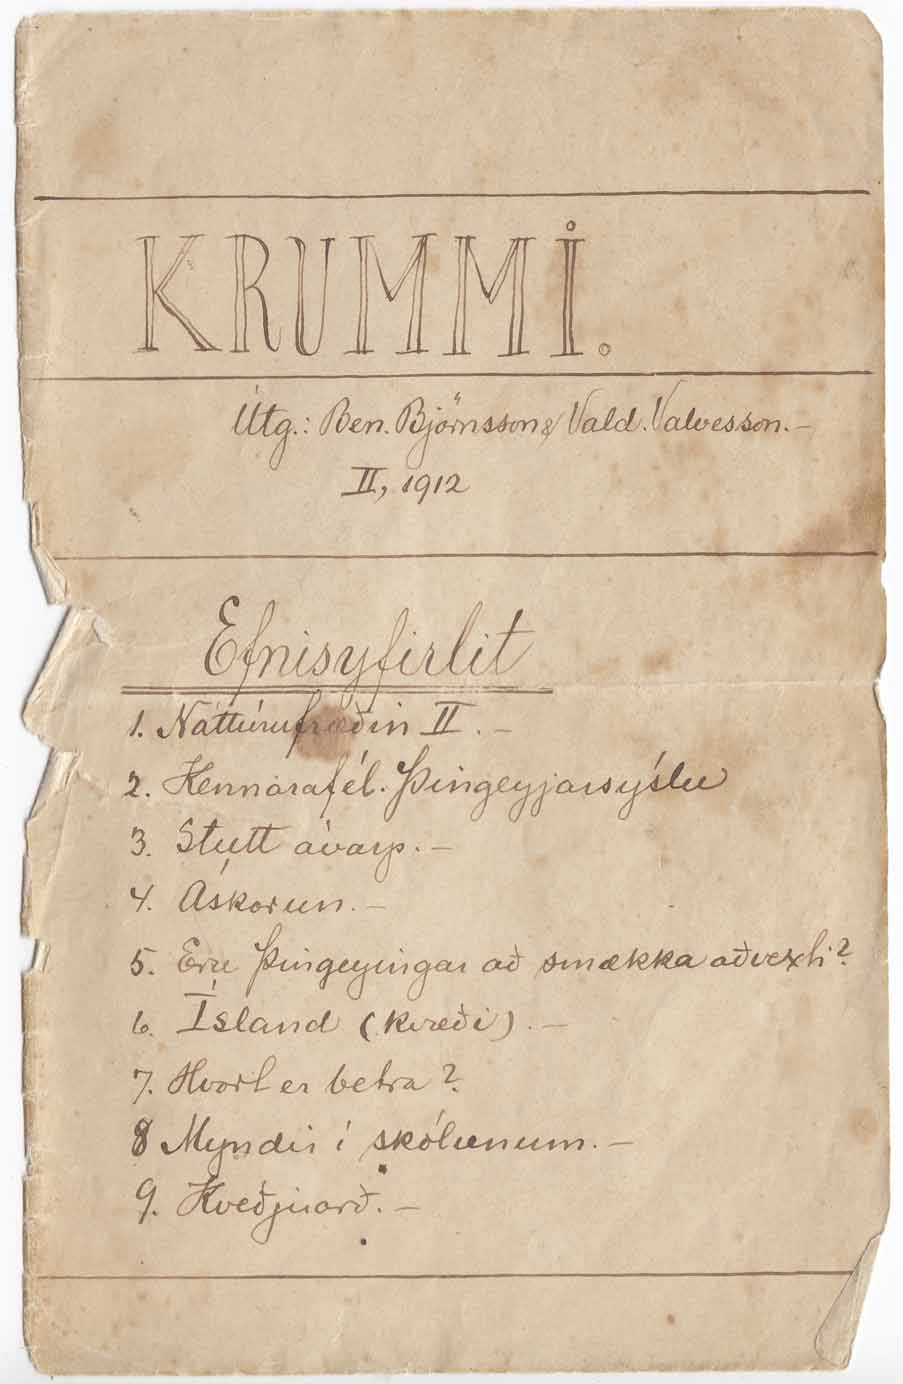 KRUMMI.
Útg.: Ben. Björnsson & Vald. Valvesson.–
II, 1912
Efnisyfirlit
1. Náttúrufræðin II. –
2. Kennarafél. Þingeyjarsýslu
3. Stutt ávarp. –
4. Áskorun. –
5. Eru Þingeyingar að smækka að vexti?
6. Ísland (kvæði). –
7. Hvort er betra?
8 Myndir í skólunum. –
9. Kveðjuorð. –